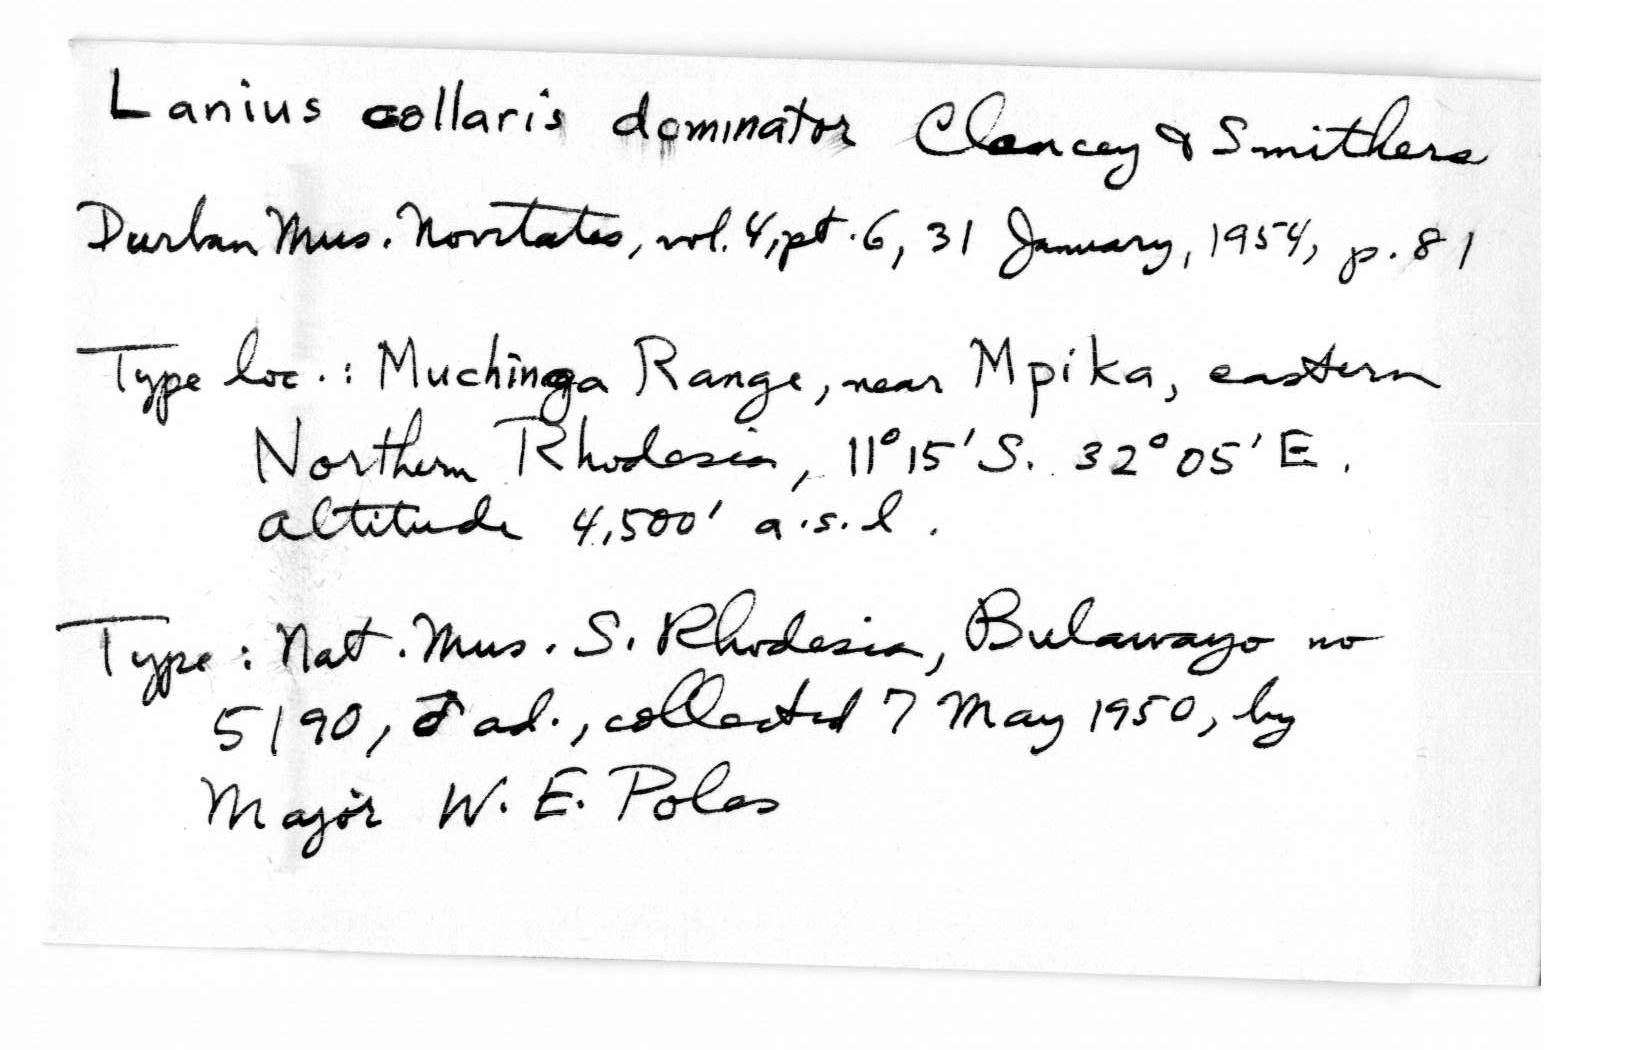 Lanius collaris dominator Clancey & Smithers
Durban Mus. Novitates, vol. 4, pt. 6, 31 January, 1954, p. 81
Type loc.: Muchinga Range, near Mpika, eastern
Northern Rhodesia, 11°15'S. 32°05'E.
altitude 4,500' a.s.l.
Type: Nat. Mus. S. Rhodesia, Bulawayo no
5190, ♂ ad., collected 7 May 1950, by
Major W. E. Poles